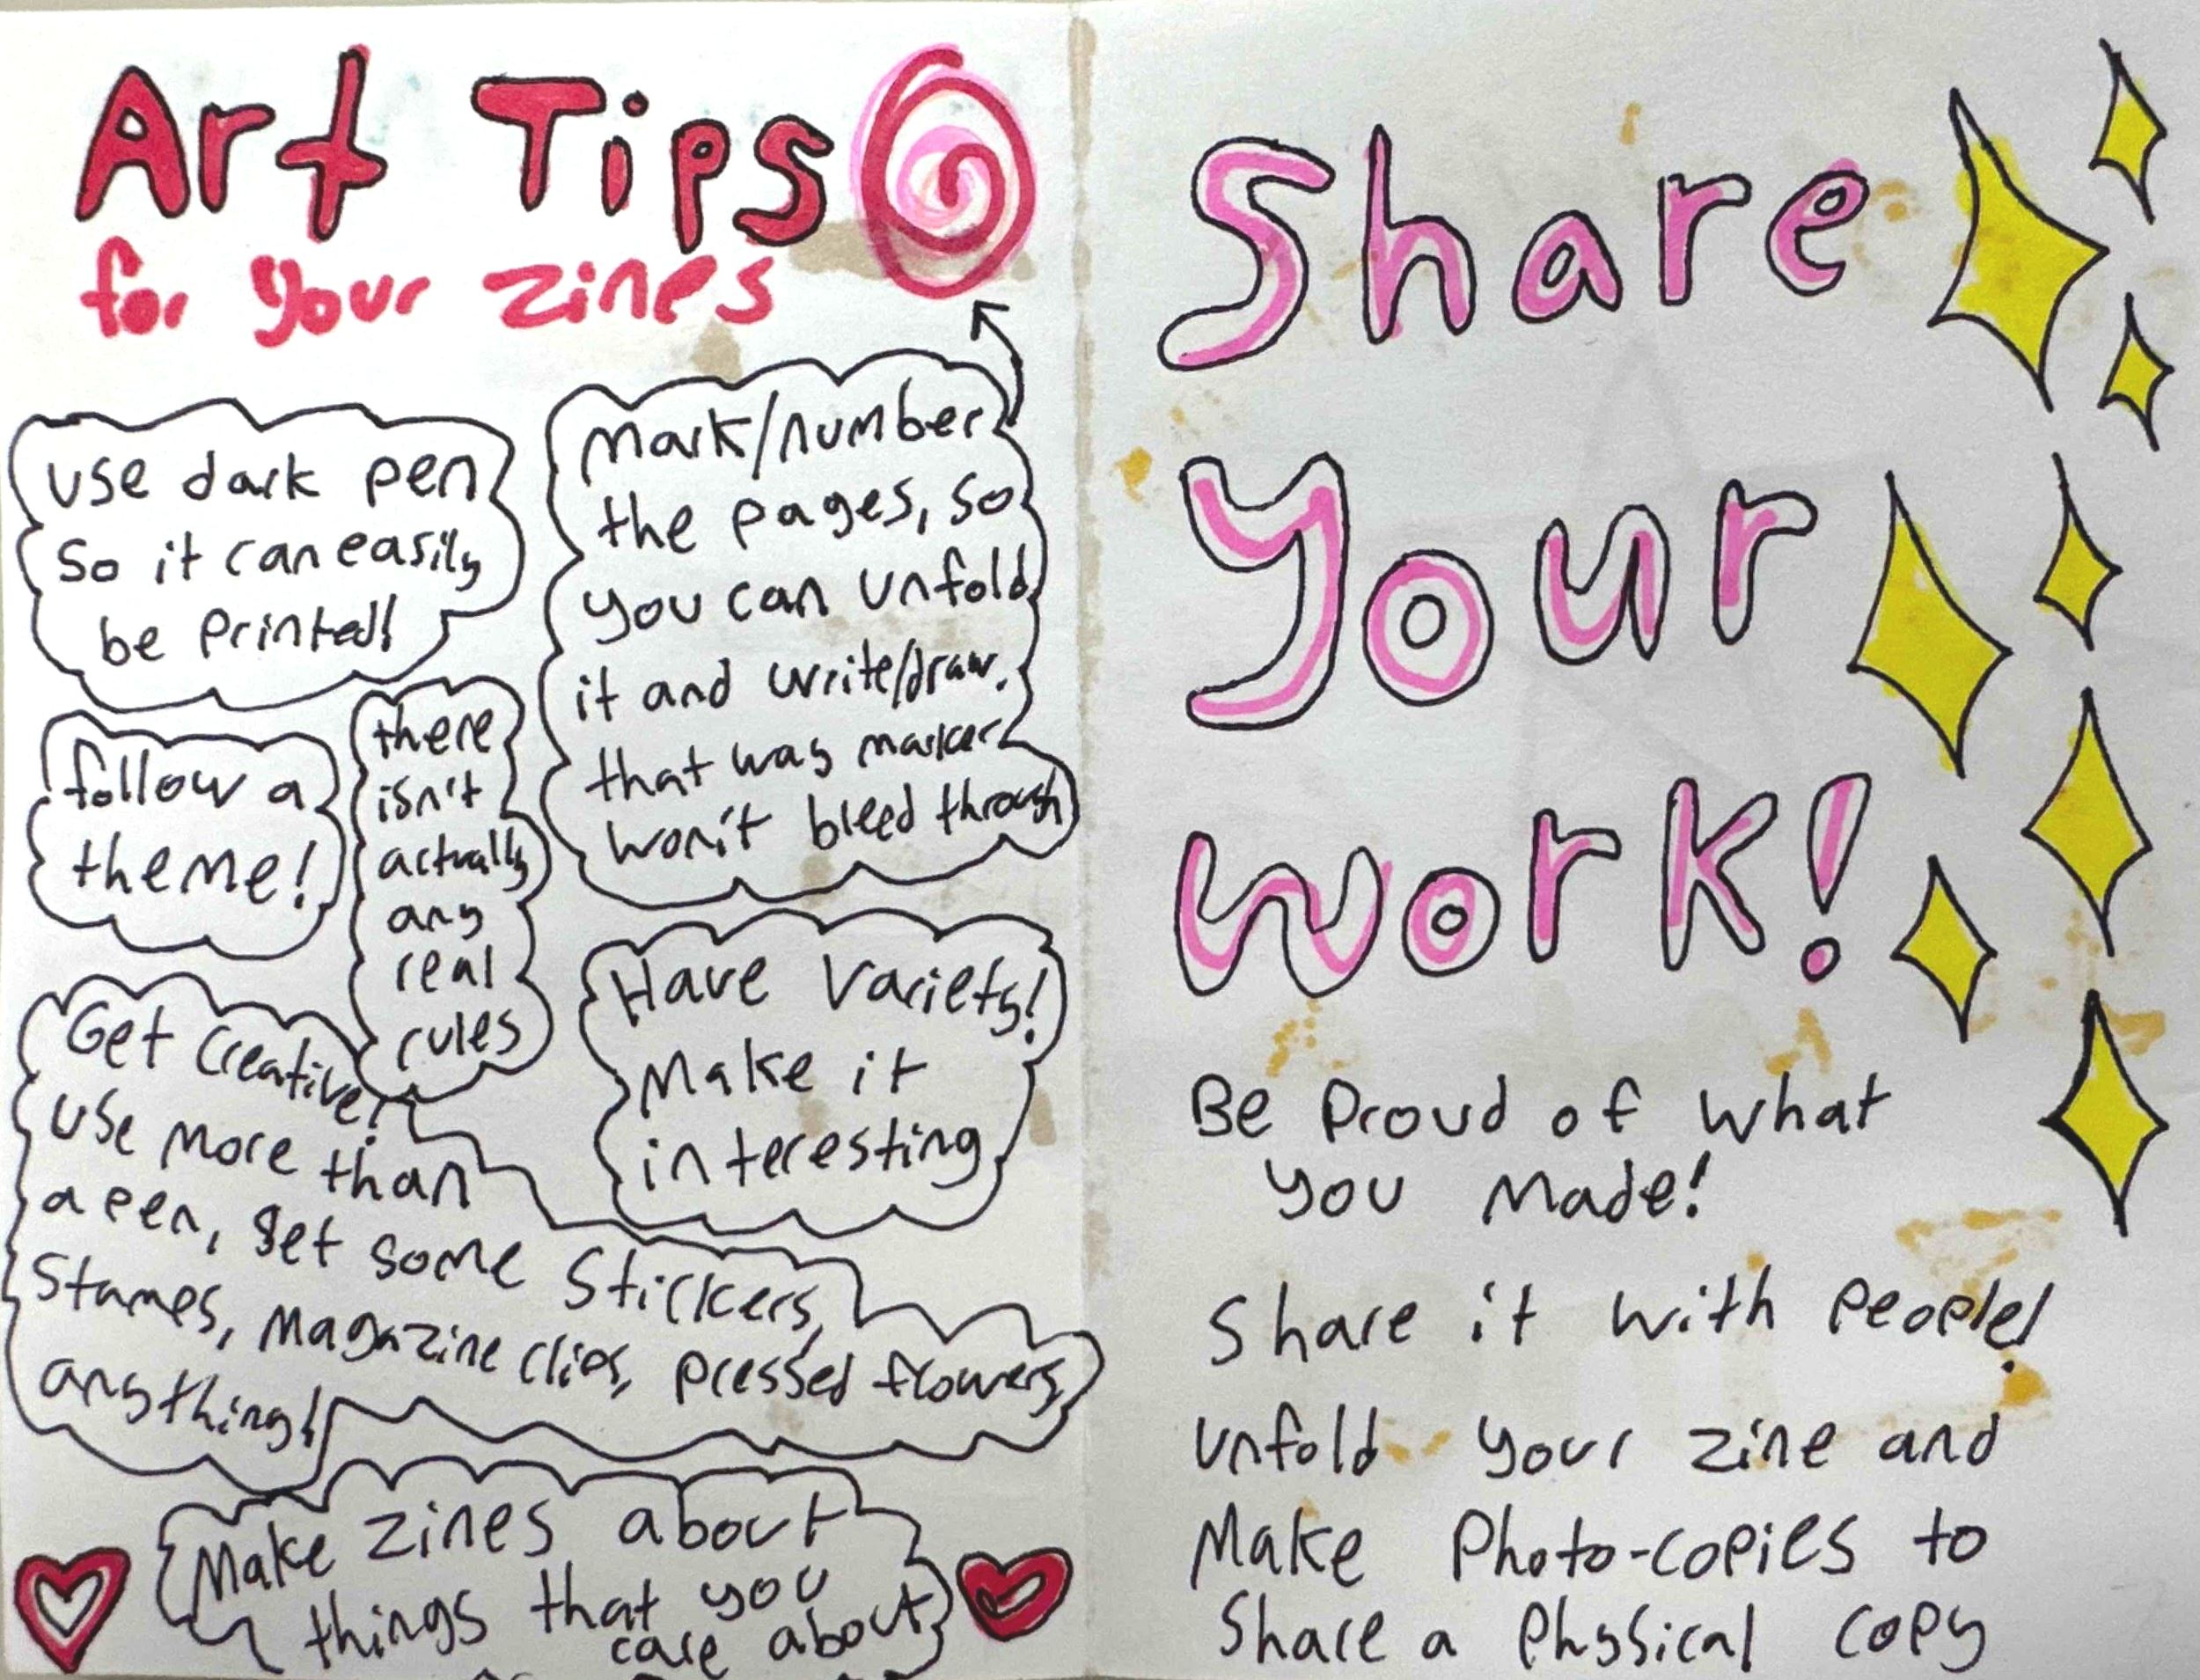 Art Tips
for your zines
use dark pen
so it can easily
be printed!
mark/number
the pages, so
you can unfold
it and write/draw.
that way marker
won't bleed through
follow a
theme!
there
isn't
actually
any
real
rules
Have variety!
Make it
interesting
Get creative!
use more than
a pen, get some stickers,
stamps, magazine clips, pressed flowers,
anything!
Make zines about
things that you
care about
Share
Your
work!
Be proud of what
you made!
Share it with people!
unfold your zine and
Make photo-copies to
share a physical copy